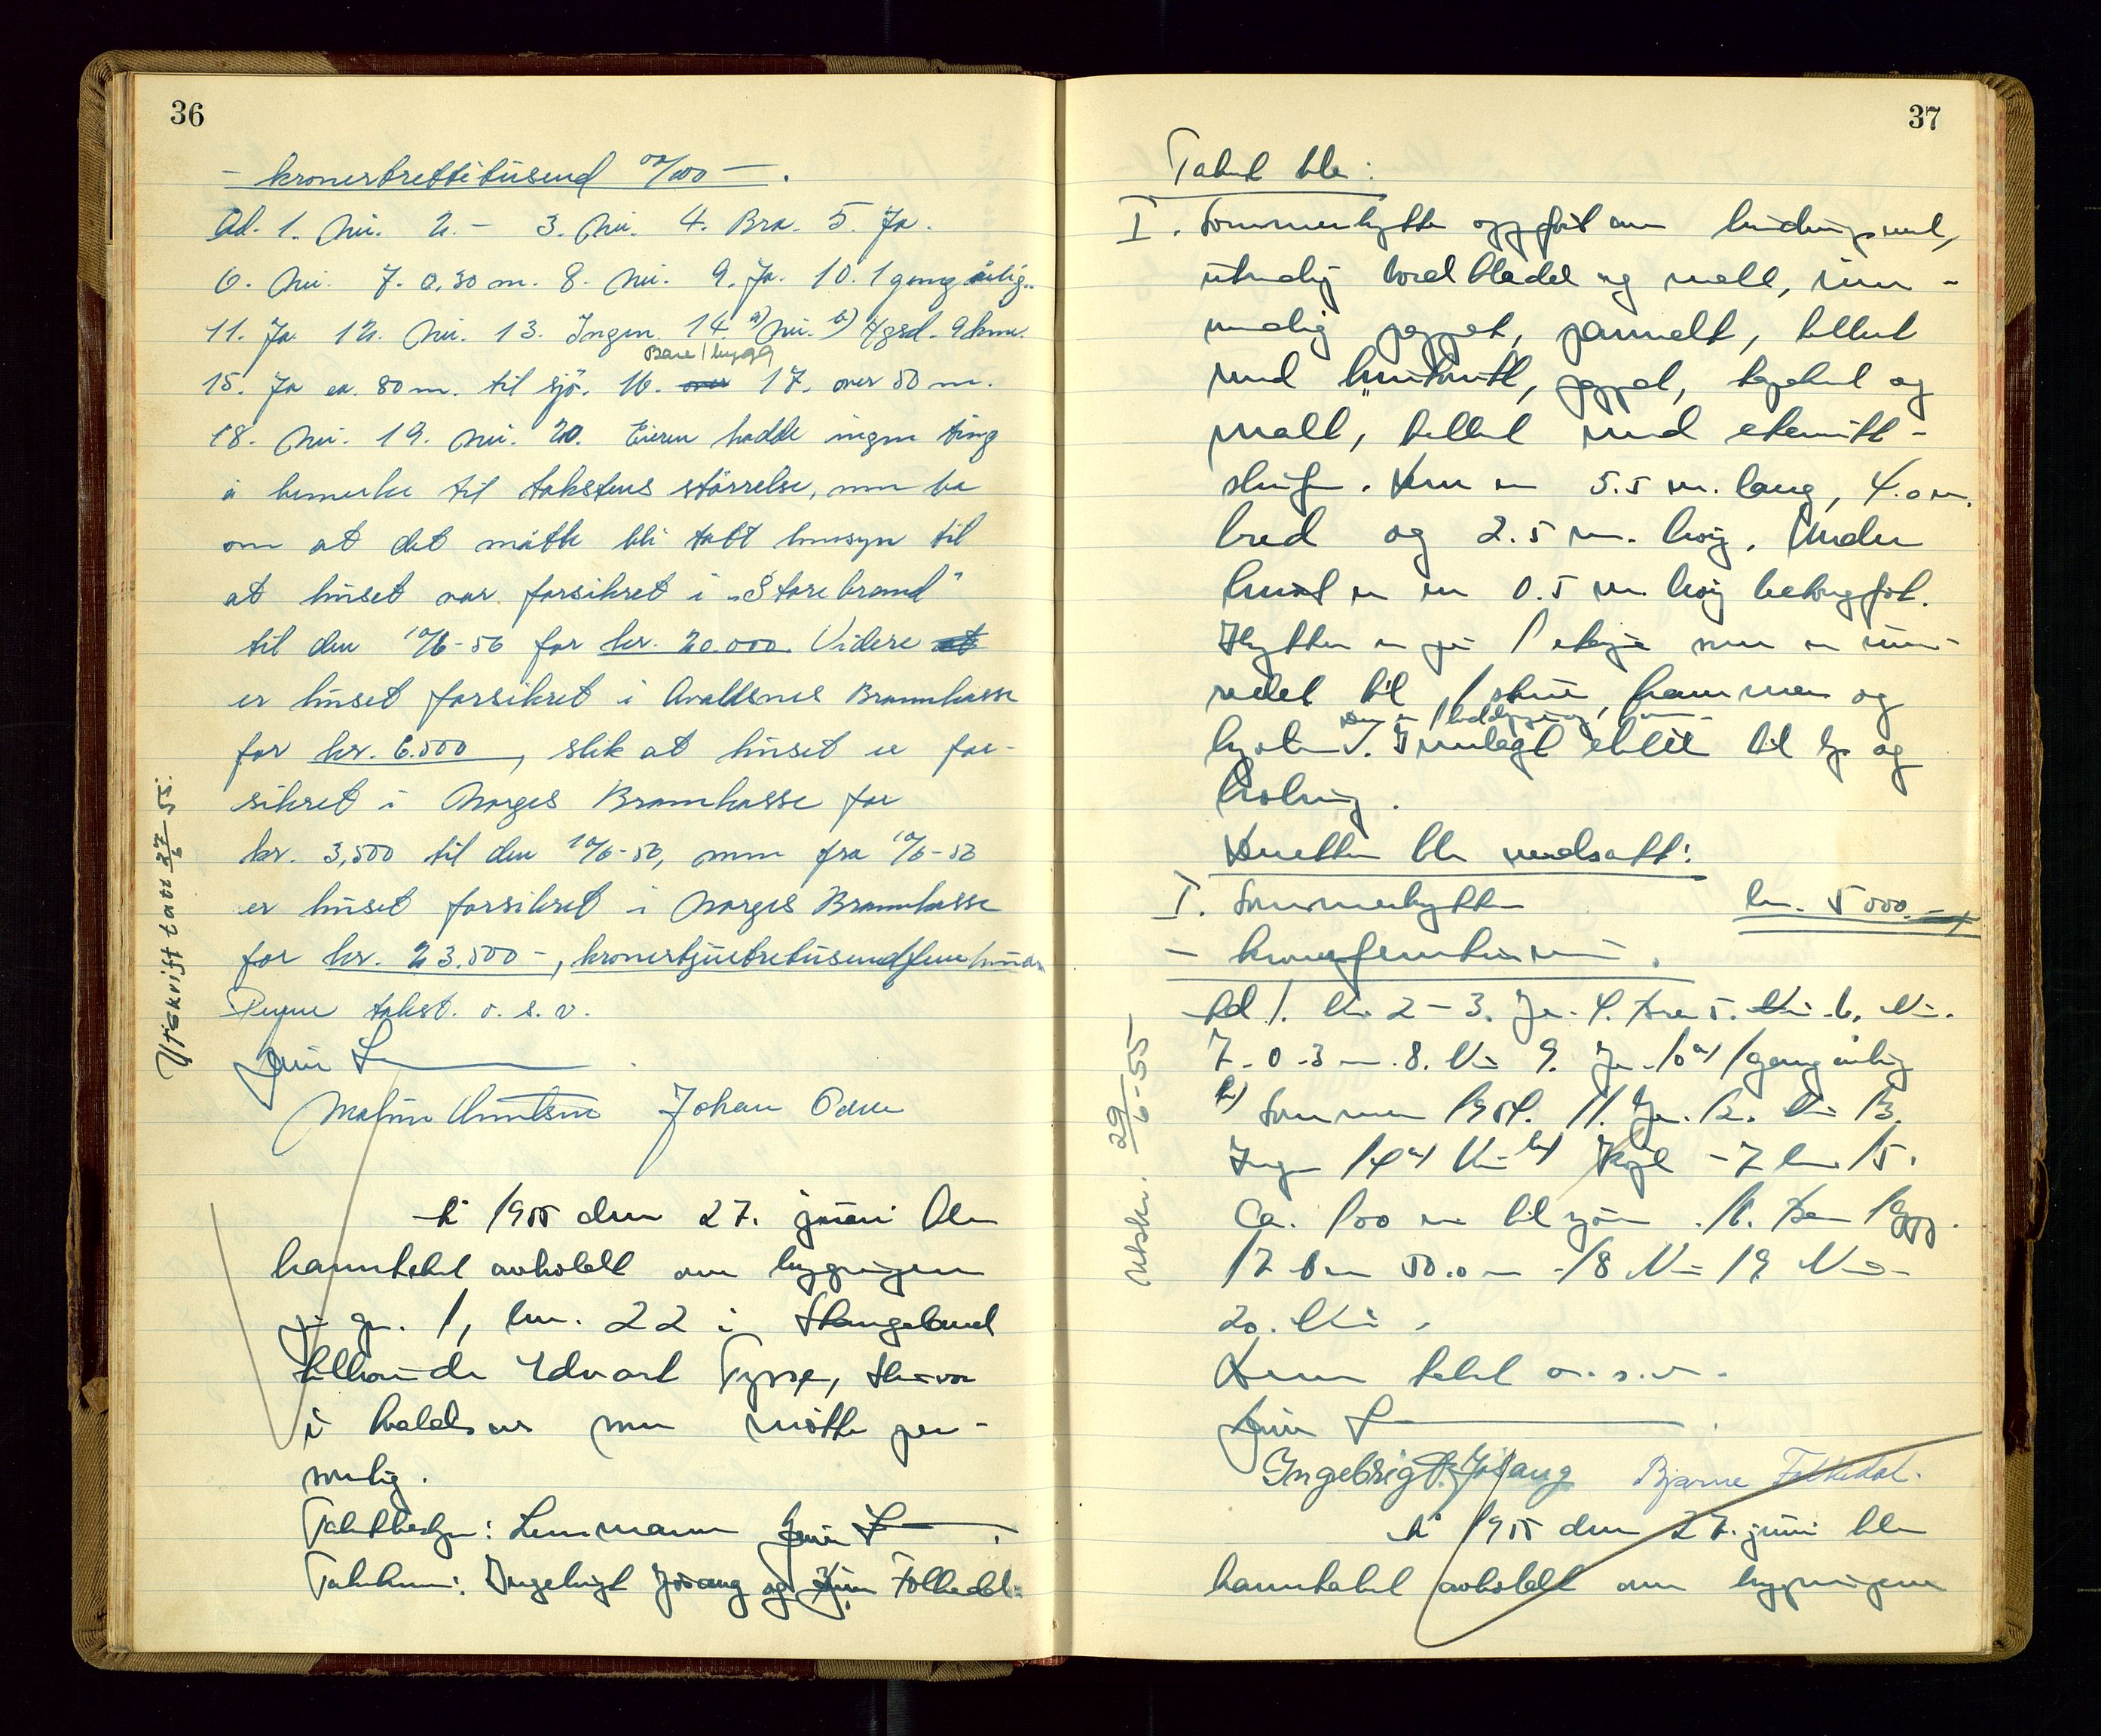 36
- kronertrettitusend 00/100 - .
Ad. 1. Nei. 2. - 3. Nei. 4. Bra. 5. Ja.
6. Nei. 7. 0,30 m. 8. Nei. 9. Ja. 10. 1 gang årlig.
11. Ja 12. Nei. 13. Ingen. 14. a) Nei. b) 9 km.
Bare 1 bygg
15. Ja ca. 80 m. til sjø. 16. over 17. over 50 m.
18. Nei. 19. Nei. 20. Eieren hadde ingen ting
å bemerke til takstens størrelse, men ba
om at det måtte bli tatt hensyn til
at huset var forsikret i "Storebrand"
til den 10/6-56 for kr. 20.000. Videre at
er huset forsikret i Avaldsnes Brannkasse
for kr. 6.500, slik at huset er for-
sikret i Norges Brannkasse for
kr. 3,500 til den 10/6-56, men fra 10/6-56
er huset forsikret i Norges Brannkasse
for kr. 23.500 -, kronertjuetretusendfemhundre
Denne takst. o. s. v.
Johan
År 1955 den 27. juni ble
branntakst avholdt over bygningen
på gn. 1, bn. 22 i Stangeland
tilhørende Edvart
i Avaldsnes som møtte per-
sonlig.
Takstbestyrer: Lensmann
Takstmenn: Ingebrigt Jøsang og Folkedal.
Utskrift tatt 27/6 55.
37
Takst ble:
I. Sommerhytte oppført av bindingsverk,
utvendig bordkledd og malt, inn-
vendig pappet, panelt, tekket
med huntonitt, pappet, tapetsert og
malt, tekket med eternitt-
skifer. Den er 5.5 m. lang, 4.0 m.
bred og 2.5 m. høy. Under
huset er en 0.5 m høy betongfot.
Hytten er på 1 etasje som er inn-
redet til 1 stue, kammer og
kjøken. Innlagt elektr. til lys og
kokning.
Denne ble verdsatt:
I. Sommerhytte kr. 5000.-
- kronerfemtusen - .
Ad 1. Nei 2 - 3. Ja. 4. Bra 5. Nei. 6. Nei.
7. 0.3 m. 8. Nei 9. Ja. 10 a) 1 gang årlig
b) Sommeren 1954. 11. Ja. 12. Nei 13.
Ingen 14 a) Nei b) - 7 km 15.
Ca. 100 m til sjøen. 16. Bare 1 bygg.
17 Over 50.0 m - 18 Nei 19 Nei -
20. Nei.
Denne takst o. s. v.
Ingebrigt Jøsang Bjarne Folkedal.
År 1955 den 27. juni ble
branntakst avholdt over bygningene
Utskr. 29/6-55